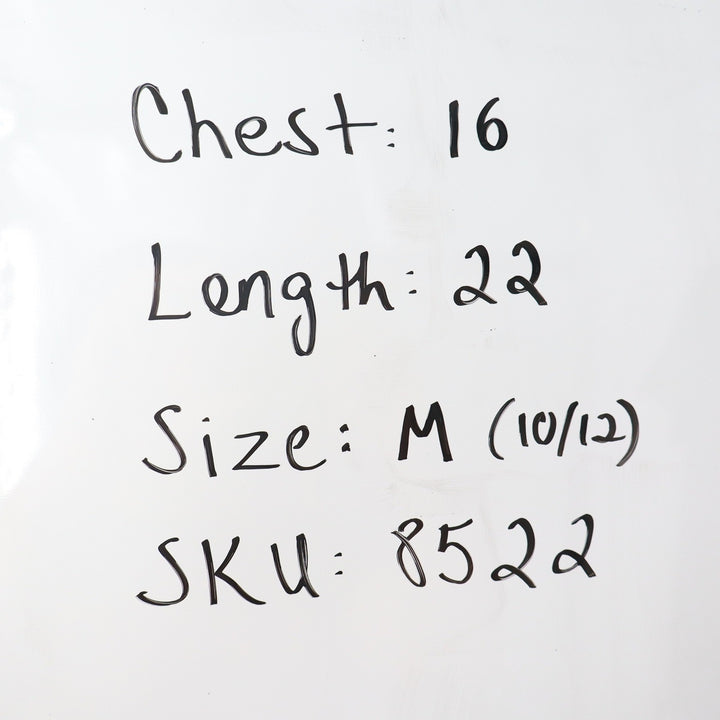 Chest: 16
Length: 22
Size: M (10/12)
SKU: 8522